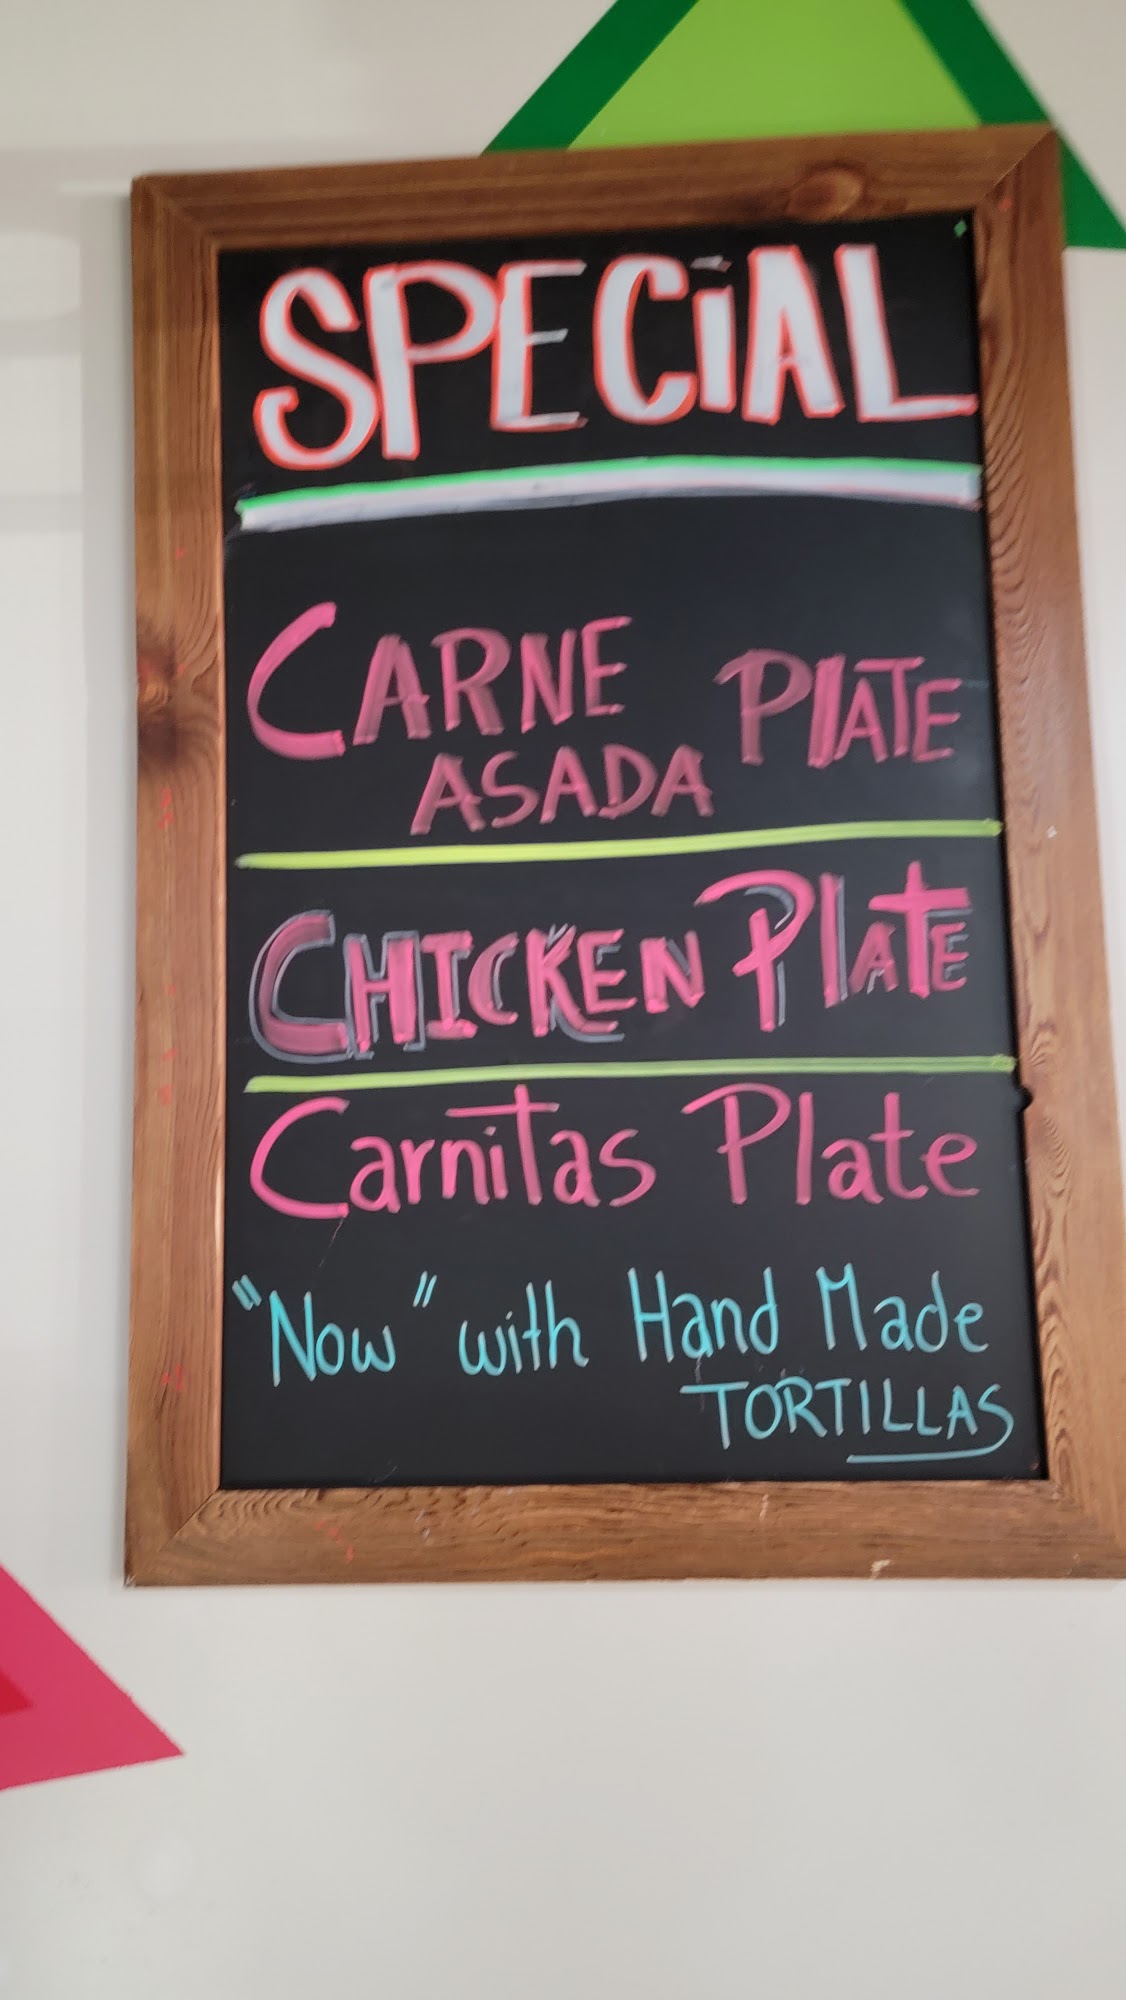 SPECiAL
CARNE PLATE
ASADA
CHICKEN PlAtE
CarniTas Plate
"Now" with Hand Made
TORTILLAS